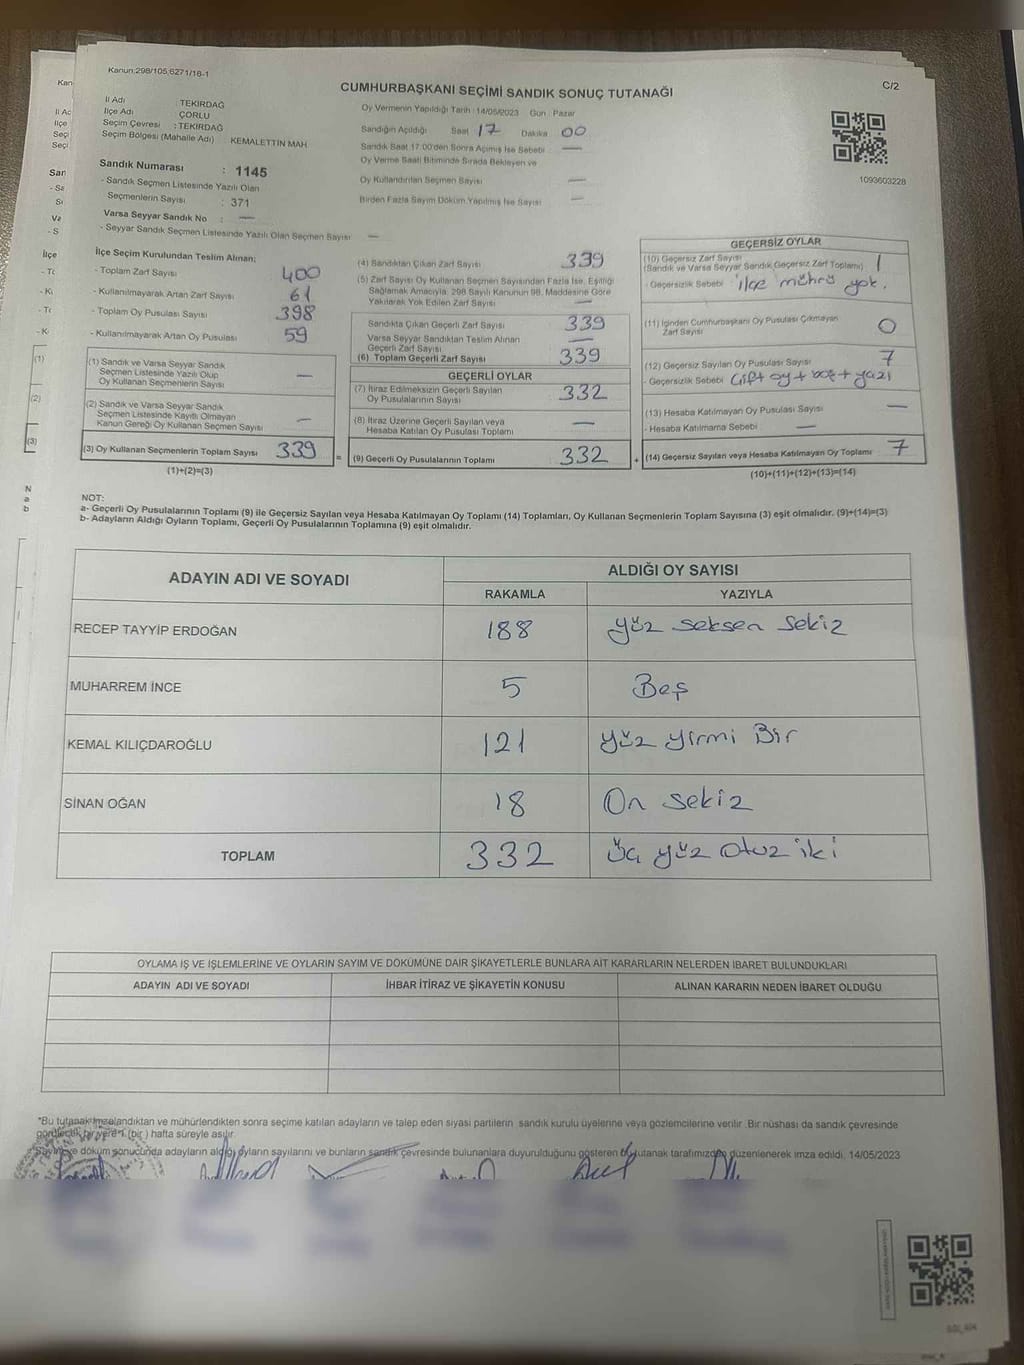 Kanun:298/105,6271/18-1
CUMHURBAŞKANI SEÇİMİ SANDIK SONUÇ TUTANAĞI
C/2
İl Adı : TEKİRDAĞ
İlçe Adı : ÇORLU
Seçim Çevresi : TEKİRDAĞ
Seçim Bölgesi (Mahalle Adı) KEMALETTIN MAH
Oy Vermenin Yapıldığı Tarih : 14/05/2023 Gün : Pazar
Sandığın Açıldığı Saat 17 Dakika 00
Sandık Saat 17:00'den Sonra Açılmış İse Sebebi —
Oy Verme Saati Bitiminde Sırada Bekleyen ve
Oy Kullandırılan Seçmen Sayısı —
Birden Fazla Sayım Döküm Yapılmış İse Sayısı —
1093603228
Sandık Numarası : 1145
- Sandık Seçmen Listesinde Yazılı Olan
Seçmenlerin Sayısı : 371
Varsa Seyyar Sandık No : —
- Seyyar Sandık Seçmen Listesinde Yazılı Olan Seçmen Sayısı —
İlçe Seçim Kurulundan Teslim Alınan;
- Toplam Zarf Sayısı 400
- Kullanılmayarak Artan Zarf Sayısı 61
- Toplam Oy Pusulası Sayısı 398
- Kullanılmayarak Artan Oy Pusulası 59
(1) Sandık ve Varsa Seyyar Sandık
Seçmen Listesinde Yazılı Olup
Oy Kullanan Seçmenlerin Sayısı —
(2) Sandık ve Varsa Seyyar Sandık
Seçmen Listesinde Kayıtlı Olmayan
Kanun Gereği Oy Kullanan Seçmen Sayısı —
(3) Oy Kullanan Seçmenlerin Toplam Sayısı 339
(1)+(2)=(3)
(4) Sandıktan Çıkan Zarf Sayısı 339
(5) Zarf Sayısı Oy Kullanan Seçmen Sayısından Fazla İse, Eşitliği
Sağlamak Amacıyla, 298 Sayılı Kanunun 98. Maddesine Göre
Yakılarak Yok Edilen Zarf Sayısı —
Sandıkta Çıkan Geçerli Zarf Sayısı 339
Varsa Seyyar Sandıktan Teslim Alınan
Geçerli Zarf Sayısı —
(6) Toplam Geçerli Zarf Sayısı 339
GEÇERLİ OYLAR
(7) İtiraz Edilmeksizin Geçerli Sayılan
Oy Pusulalarının Sayısı 332
(8) İtiraz Üzerine Geçerli Sayılan veya
Hesaba Katılan Oy Pusulası Toplamı —
= (9) Geçerli Oy Pusulalarının Toplamı 332
GEÇERSİZ OYLAR
(10) Geçersiz Zarf Sayısı
(Sandık ve Varsa Seyyar Sandık Geçersiz Zarf Toplamı) 1
- Geçersizlik Sebebi ilçe mührü yok.
(11) İçinden Cumhurbaşkanı Oy Pusulası Çıkmayan
Zarf Sayısı 0
(12) Geçersiz Sayılan Oy Pusulası Sayısı 7
- Geçersizlik Sebebi Çift oy + boş + yazı
(13) Hesaba Katılmayan Oy Pusulası Sayısı —
- Hesaba Katılmama Sebebi —
+ (14) Geçersiz Sayılan veya Hesaba Katılmayan Oy Toplamı 7
(10)+(11)+(12)+(13)=(14)
NOT:
a- Geçerli Oy Pusulalarının Toplamı (9) ile Geçersiz Sayılan veya Hesaba Katılmayan Oy Toplamı (14) Toplamları, Oy Kullanan Seçmenlerin Toplam Sayısına (3) eşit olmalıdır. (9)+(14)=(3)
b- Adayların Aldığı Oyların Toplamı, Geçerli Oy Pusulalarının Toplamına (9) eşit olmalıdır.
ADAYIN ADI VE SOYADI ALDIĞI OY SAYISI
RAKAMLA YAZIYLA
RECEP TAYYİP ERDOĞAN 188 yüz seksen sekiz
MUHARREM İNCE 5 Beş
KEMAL KILIÇDAROĞLU 121 yüz yirmi Bir
SİNAN OĞAN 18 On sekiz
TOPLAM 332 üç yüz otuz iki
OYLAMA İŞ VE İŞLEMLERİNE VE OYLARIN SAYIM VE DÖKÜMÜNE DAİR ŞİKAYETLERLE BUNLARA AİT KARARLARIN NELERDEN İBARET BULUNDUKLARI
ADAYIN ADI VE SOYADI İHBAR İTİRAZ VE ŞİKAYETİN KONUSU ALINAN KARARIN NEDEN İBARET OLDUĞU
*Bu tutanak imzalandıktan ve mühürlendikten sonra seçime katılan adayların ve talep eden siyasi partilerin sandık kurulu üyelerine veya gözlemcilerine verilir .Bir nüshası da sandık çevresinde
görülecek bir yere 1 (bir ) hafta süreyle asılır.
Sayım ve döküm sonucunda adayların aldığı oyların sayılarını ve bunların sandık çevresinde bulunanlara duyurulduğunu gösteren bu tutanak tarafımızdan düzenlenerek imza edildi. 14/05/2023